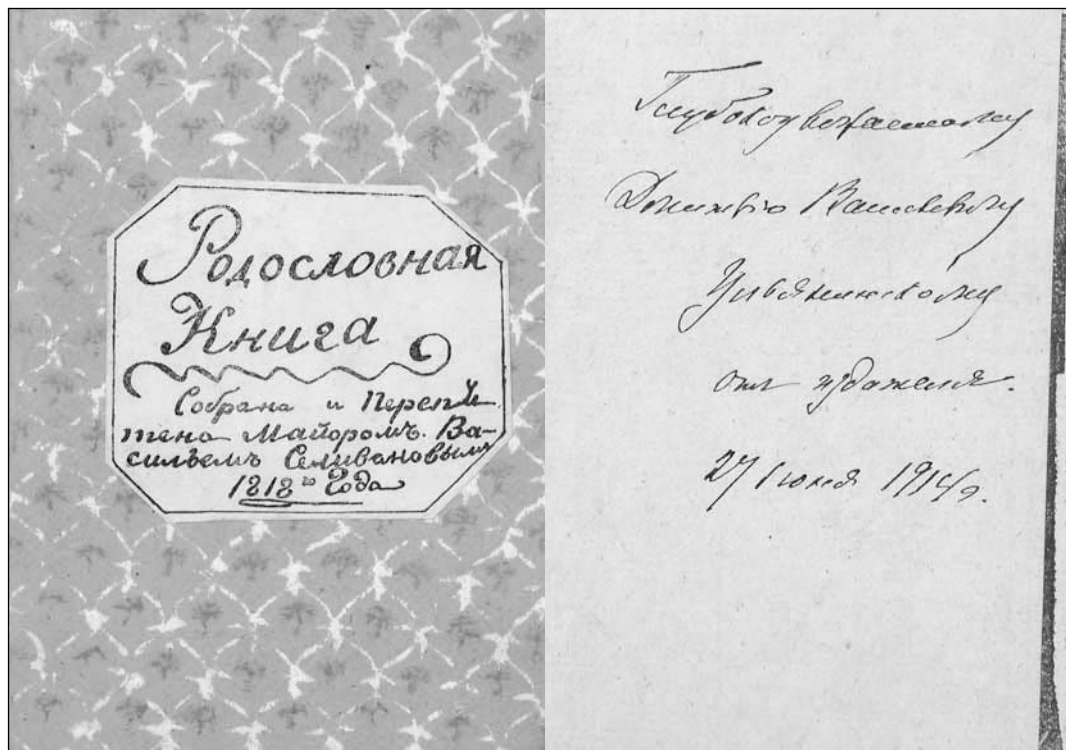 Родословная
Книга
Собрана и Переплѣ
тена Майоромъ. Ва-
сильемъ Селивановымъ
1818го Года
Глубокоуважаемому
Дмитрію Васильевичу
Ульянинскому
отъ издателя.
27 Іюня 1914 г.